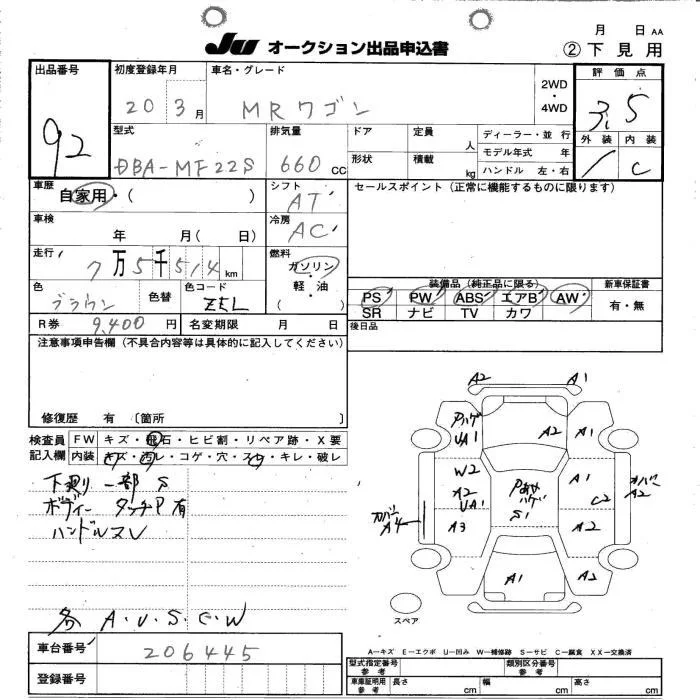 月 日 AA
Ju オークション出品申込書
②下見用
出品番号
92
初度登録年月
20 3月
車名・グレード
MRワゴン
2WD
・
4WD
評価点
3.5
外装 内装
C
型式
DBA-MF22S
排気量
660 CC
ドア
定員 人
形状
積載 kg
ディーラー・並行
モデル年式 年
ハンドル 左・右
車歴
自家用・( )
シフト
AT
セールスポイント(正常に機能するものに限ります)
車検
年 月( 日)
冷房
AC
走行
7万5千514km
燃料
ガソリン
・
軽・油
( )
色
ブラウン
色替
色コード
ZEL
装備品(純正品に限る)
PS PW ABS エアB AW
SR ナビ TV カワ
新車保証書
有・無
R券 9,400円
名変期限 月 日
後日品
注意事項申告欄(不具合内容等は具体的に記入してください)
修復歴 有 〔箇所 〕
検査員
記入欄
FW キズ・飛石・ヒビ割・リペア跡・X要
内装 キズ・汚レ・コゲ・穴・スレ・キレ・破レ
下廻り 一部 S
ボディー タッチP有
ハンドルスレ
各 A.U.S.C.W
A2 A1
Pハゲ
UA1
A2
W2
A2
UA1
A3
S1
A1
C2
A2
カバー
A2
カバー
A4
A1
A2
スペア
A-キズ E-エクボ U-凹み W-補修跡 S-サビ C-腐食 XX-交換済
車台番号
206445
登録番号
型式指定番号
参考
類別区分番号
参考
車庫証明用
参考
長さ cm
幅 cm
高さ cm